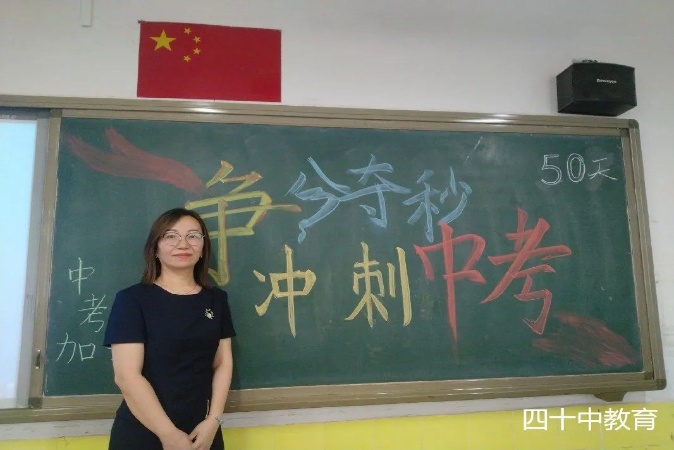 50天
争分夺秒
冲刺中考
中考
加
四十中教育